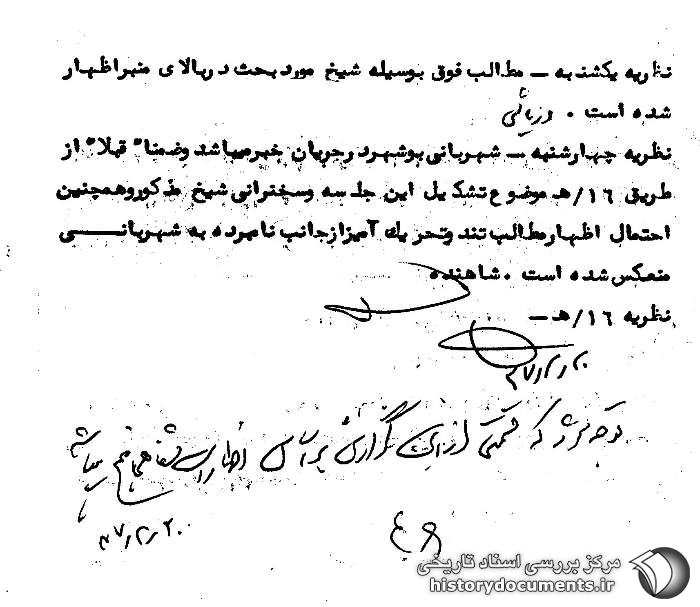 نظریه یکشنبه – مطالب فوق بوسیله شیخ مورد بحث در بالای منبر اظهار
شده است .
نظریه چهارشنبه – شهربانی بوشهر در جریان خبر میباشد وضمنا" قبلا" از
طریق ۱۶/هـ موضوع تشکیل این جلسه وسخنرانی شیخ مذکور وهمچنین
احتمال اظهار مطالب تند وتحریک آمیز از جانب نامبرده به شهربانی
منعکس شده است . شاهنده
نظریه ۱۶/هـ –
توجه شود که قسمتی از این گزارش بر اساس اظهارات
مرکز بررسی اسناد تاریخی
historydocuments.ir